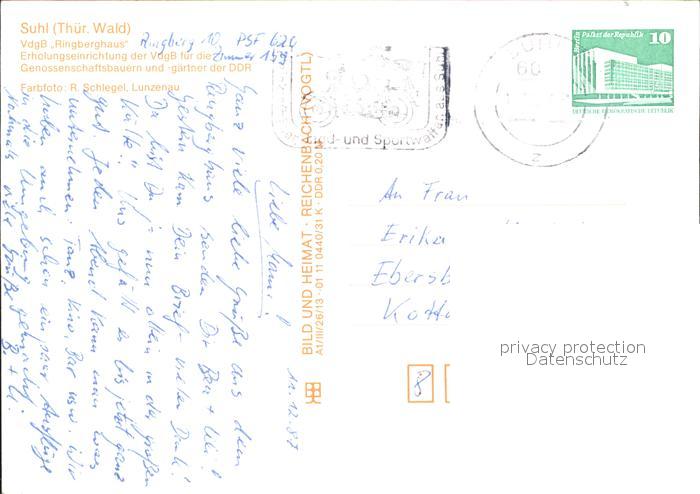 Suhl (Thür. Wald)
VdgB „Ringberghaus"
Erholungseinrichtung der VdgB für die
Genossenschaftsbauern und -gärtner der DDR
Farbfoto: R. Schlegel, Lunzenau
Ringberg 10, PSF 626
Zimmer 159
12.12.87
Liebe Mami!
Ganz viele liebe Grüße aus dem
Ringberghaus senden Dir Ben + Uli!
Gestern kam Dein Brief - vielen Dank!
Da bist Du ja nun allein in der großen
"Kälte". Uns gefällt es bis jetzt ganz
gut. Jeden Abend kann man was
unternehmen: Tanz, Kino, Bar usw. Wir
haben auch schon ein paar Ausflüge
in die Umgebung gemacht.
Nochmals viele Grüße B. + U.
BILD UND HEIMAT · REICHENBACH (VOGTL)
A1/III/26/13 · 01 11 0440/31 K · DDR 0,20 M
Jagd- und Sportwaffen aus Suhl
60
z
Berlin, Palast der Republik
10
DEUTSCHE DEMOKRATISCHE REPUBLIK
An Frau
Erika
Ebersb
Kott
8
privacy protection
Datenschutz